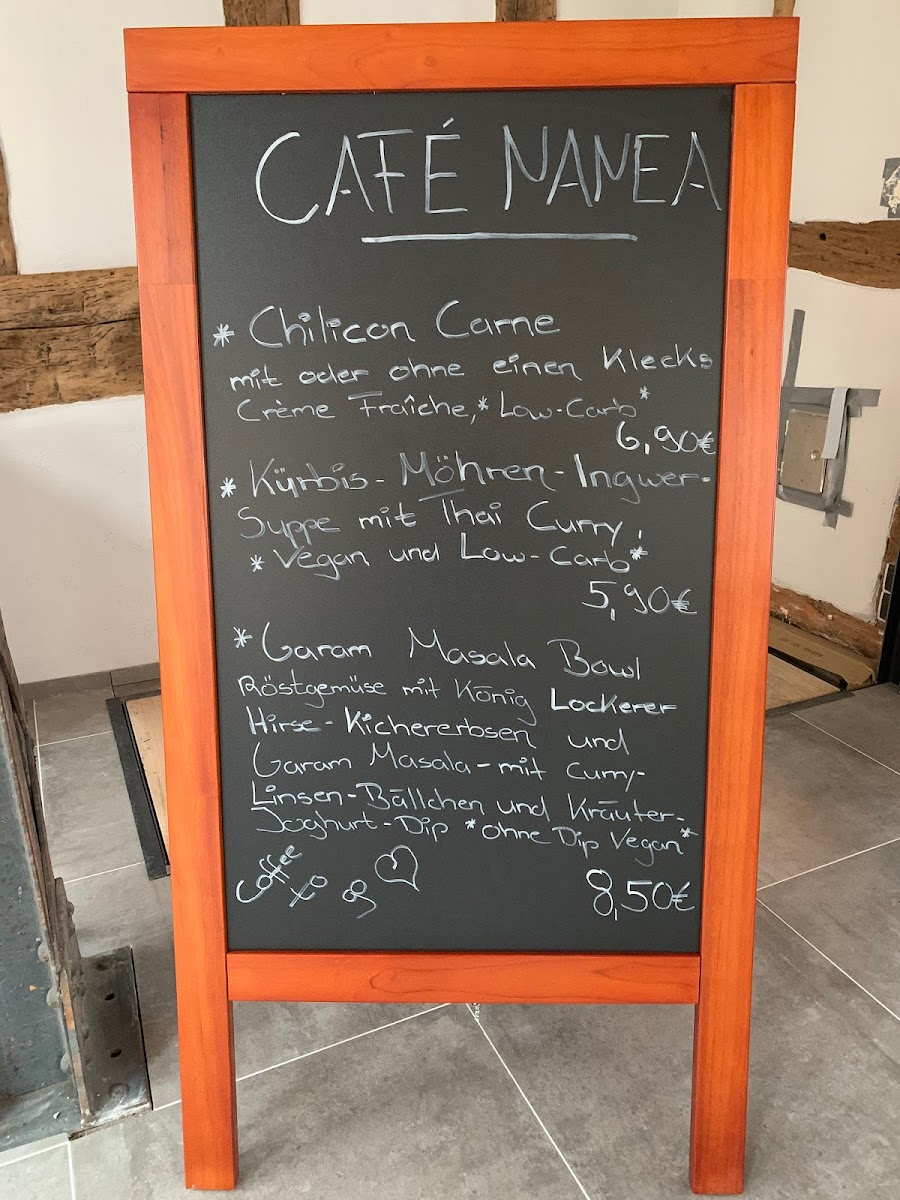 CAFÉ NANEA
* Chilicon Carne
mit oder ohne einen Klecks
Crème Fraîche, *Low-Carb*
6,90€
* Kürbis-Möhren-Ingwer-
Suppe mit Thai Curry,
*Vegan und Low-Carb*
5,90€
* Garam Masala Bowl
Röstgemüse mit König Lockerer
Hirse-Kichererbsen und
Garam Masala-mit Curry-
Linsen-Bällchen und Kräuter-
Joghurt-Dip *ohne Dip Vegan*
Coffee to go
8,50€